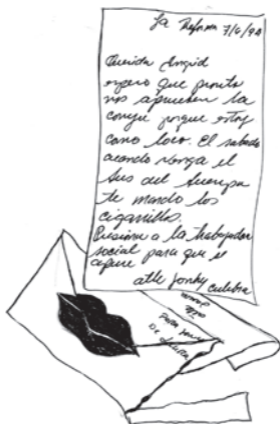 La Reforma 7/6/92
Querida Ingrid
espero que pronto
nos aprueben la
conyu porque estoy
como loco. El sabado
cuando venga el
bus del
te mando los
cigarrillos.
Presiona a la trabajador
social para que se
apure
atte Jonhy culebra
para
De